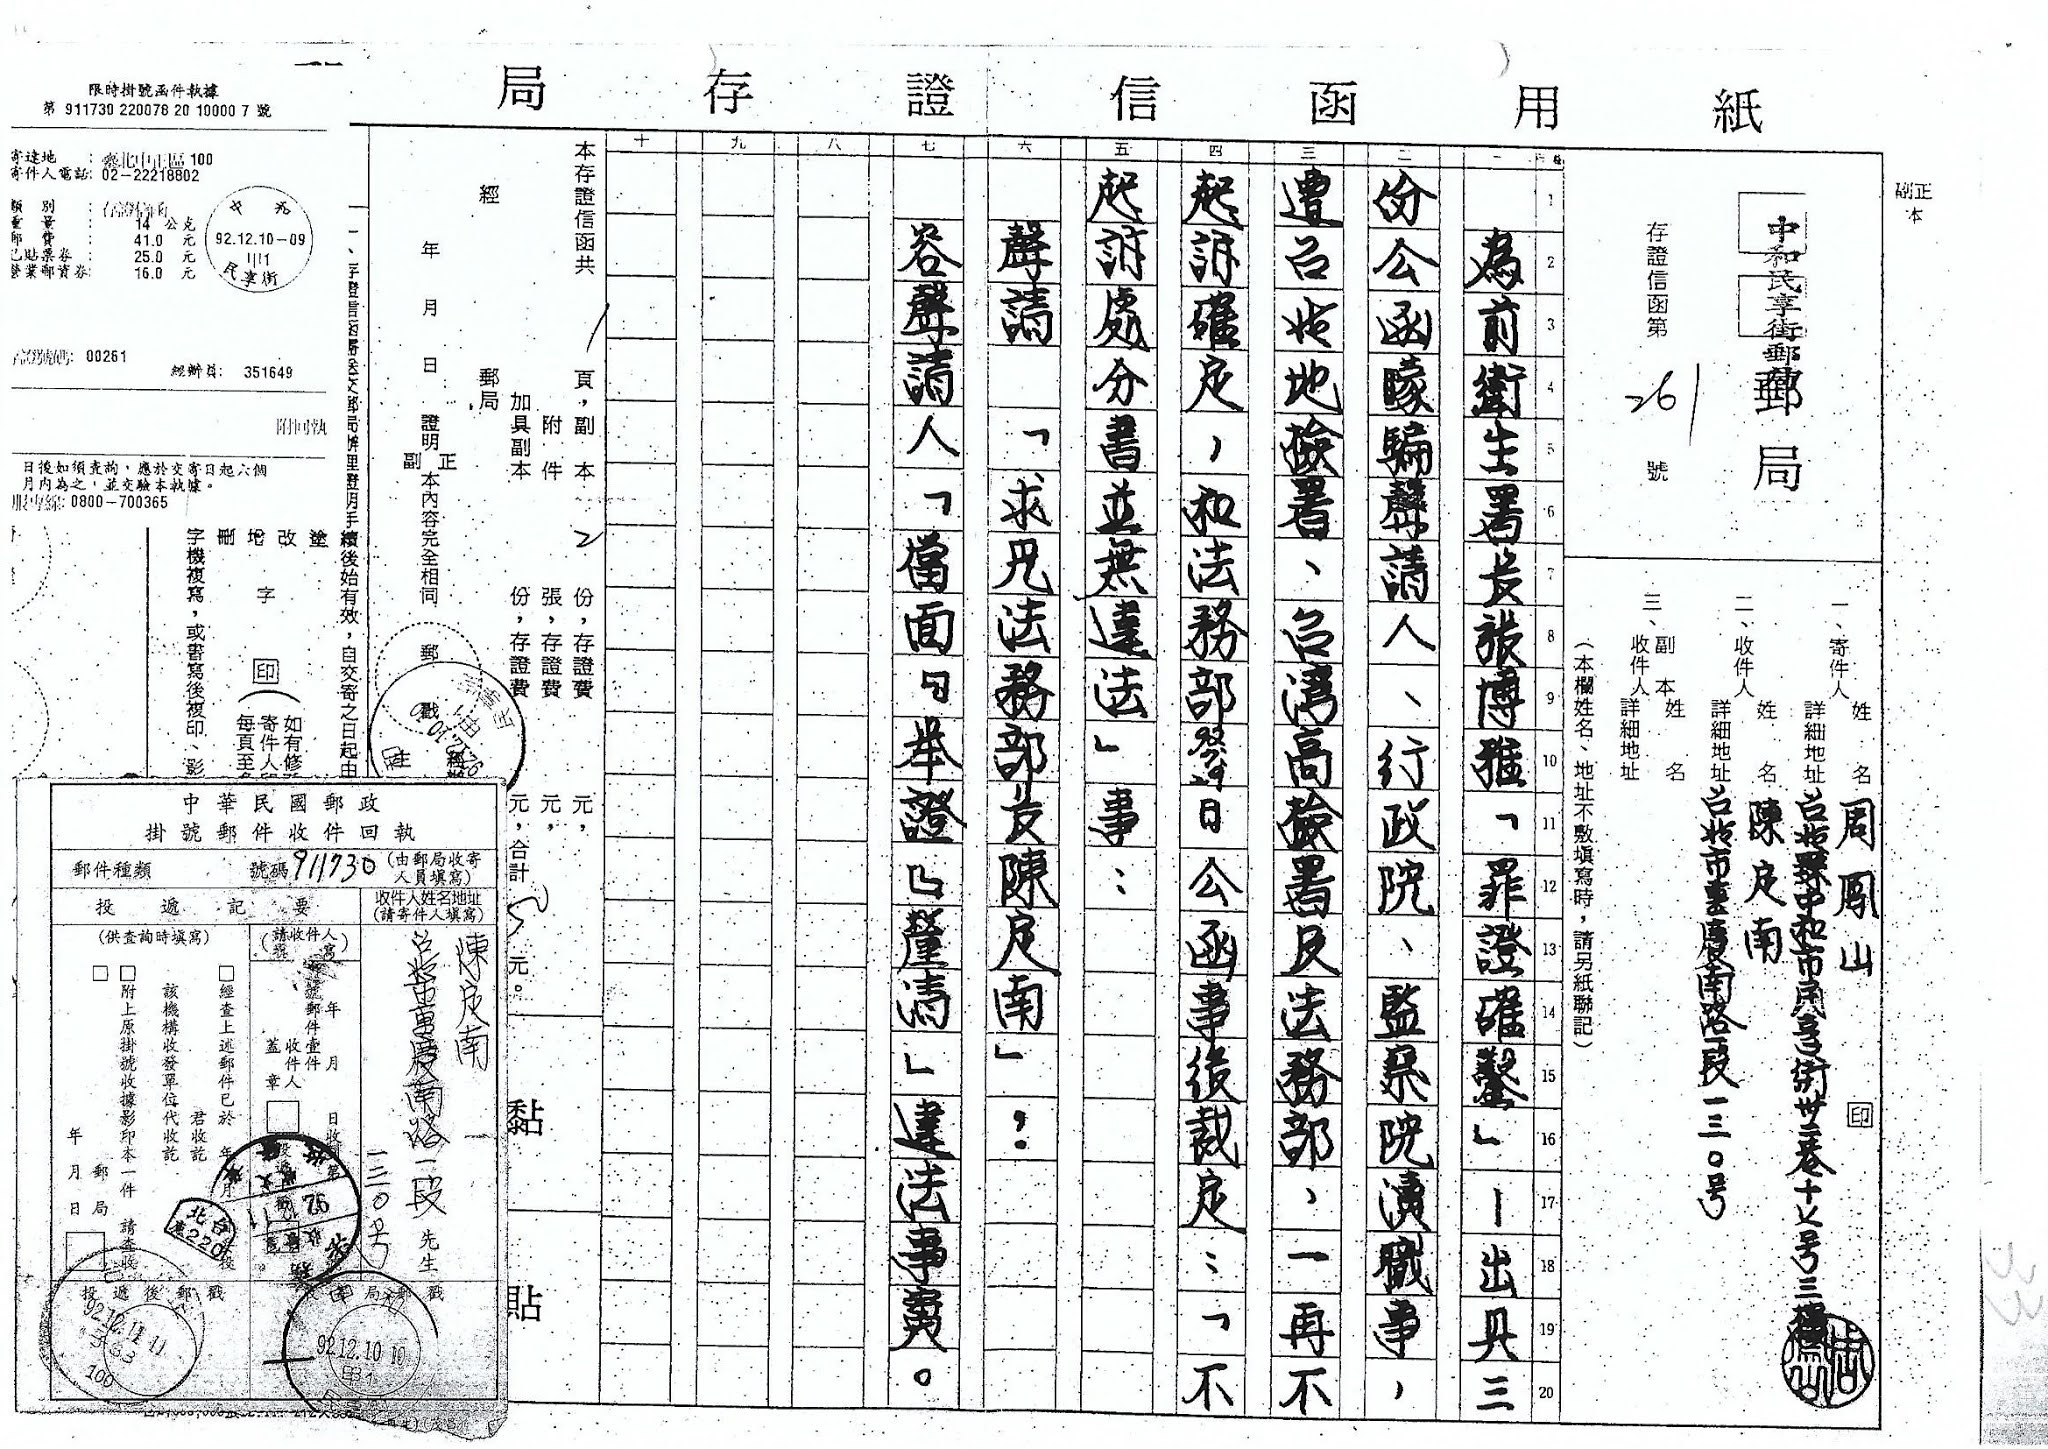 局存證信函用紙
正
副本
中和民享街郵
郵局
存證信函第 261 號
一、寄件人 姓名 周鳳山
詳細地址 台北縣中和市民享街卅三巷十七号三樓
印
二、收件人 姓名 陳定南
詳細地址 台北市重慶南路一段一三〇号
三、副本收件人 姓名
詳細地址
(本欄姓名、地址不敷填寫時,請另紙聯記)
1 2 3 4 5 6 7 8 9 10 11 12 13 14 15 16 17 18 19 20
一 為前衛生署長張博雅「罪證確鑿」—出具三
二 份公函矇騙聲請人、行政院、監察院瀆職事,
三 遭台北地檢署、台灣高檢署及法務部,一再不
四 起訴確定,和法務部 日公函事後裁定:「不
五 起訴處分書並無違法」事:
六 聲請「求見法務部長陳定南」:
七 容聲請人「當面『舉證』釐清」違法事實。
八
九
十
本存證信函共 1 頁,副本 2 份,存證費 元,
附件 張,存證費 元,
加具副本 份,存證費 元,合計 元。
經 郵局
年 月 日 證明 正副 本內容完全相同 郵戳
黏
貼
一、存證信函需送交郵局辦理證明手續後始有效,自交寄之日起由
塗改增刪 字 印
如有修
寄件人印
每頁至
字機複寫,或書寫後複印、影
限時掛號函件執據
第 911730 220078 20 10000 7 號
寄達地 : 臺北中正區 100
寄件人電話: 02-22218802
類 別 : 存證信函
重 量 : 14 公克
郵 費 : 41.0 元
已貼票券 : 25.0 元
營業郵資券: 16.0 元
中和
92.12.10-09
民享街
存證號碼: 00261
經辦員: 351649
附回執
日後如須查詢,應於交寄日起六個
月內為之,並交驗本執據。
服專線: 0800-700365
中華民國郵政
掛號郵件收件回執
郵件種類
號碼 911730 (由郵局收寄人員填寫)
投遞記要
(供查詢時填寫)
收件人姓名地址
(請寄件人填寫)
陳定南 先生
台北市重慶南路一段一三〇号
(請收件人填寫)
年 月 日收到第 號郵件壹件
收件人蓋章
□經查上述郵件已於 年 月 日 君收訖
該機構收發單位代收訖
□附上原掛號收據影印本一件請查收
□
年 月 日
郵局
投遞後郵戳
郵局郵戳
92.12.11 11
100
92.12.10 10
台北
220